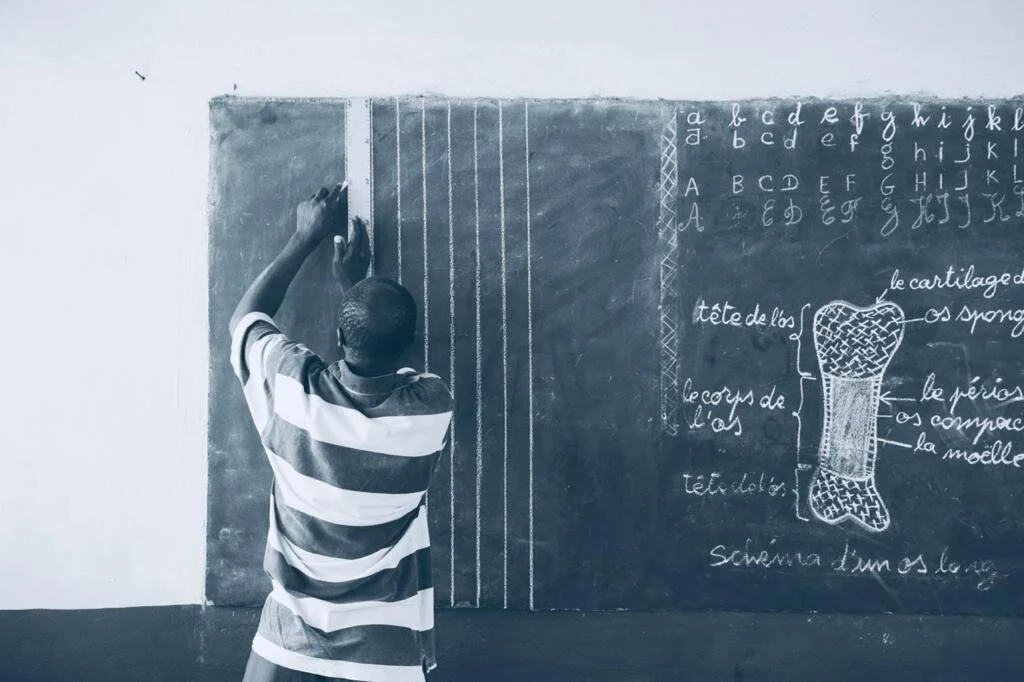 a b c d e f g h i j k l
a b c d e f g h i j k l
A B C D E F G H I J K L
A C D E F G H I J K
le cartilage d
tête de l'os
os spong
le corps de
l'os
le périos
os compac
la moëlle
tête de l'os
Schéma d'un os long